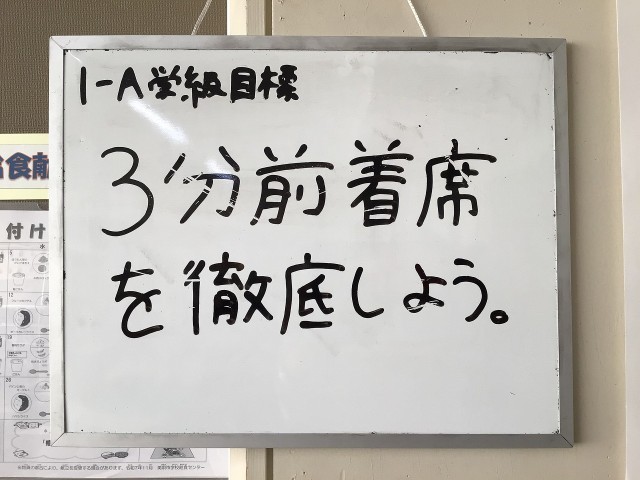 1-A学級目標
3分前着席
を徹底しよう。
食献
付け